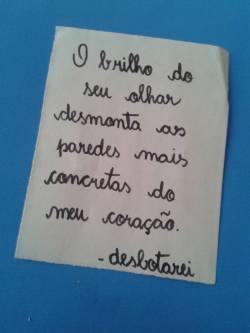 O brilho do
seu olhar
desmonta as
paredes mais
concretas do
meu coração.
- desbotarei